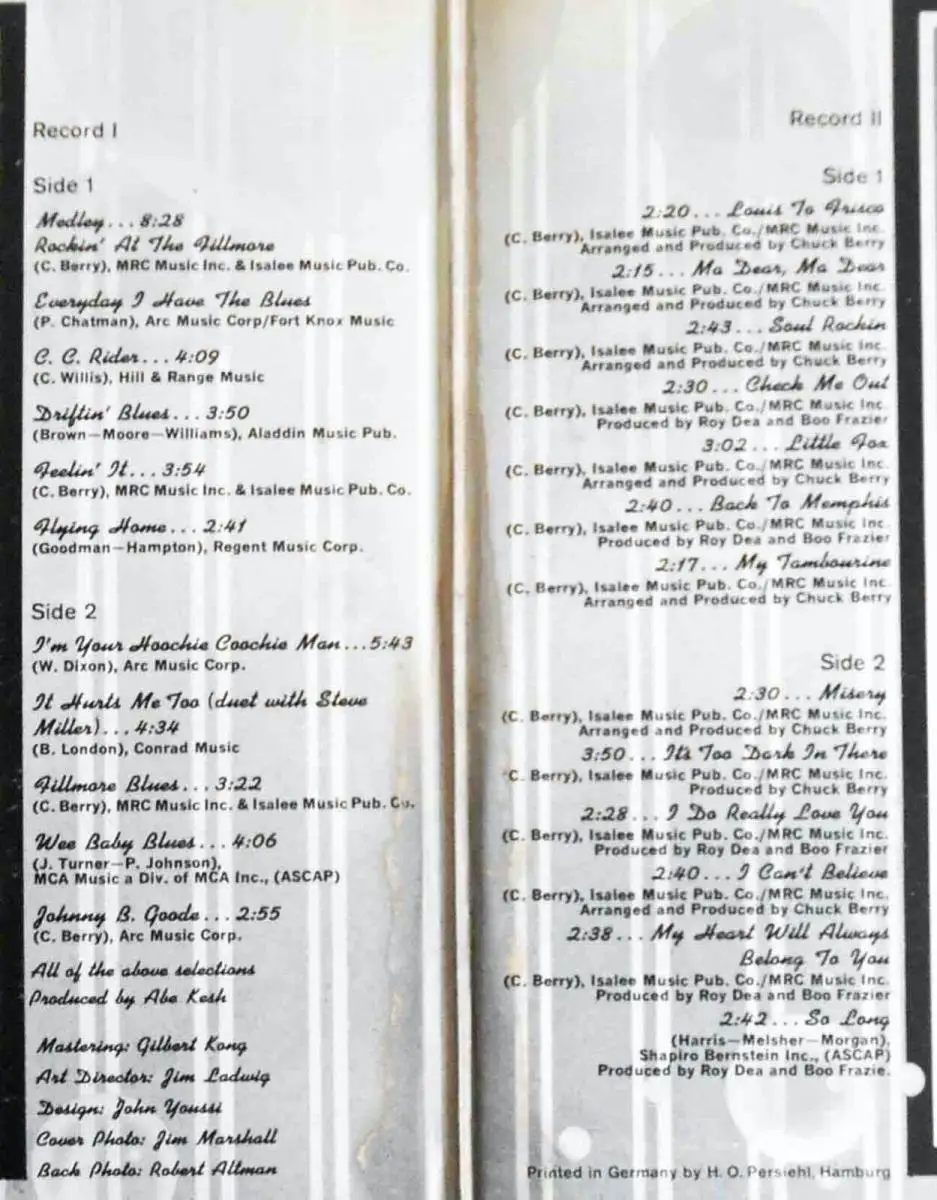 Record I
Side 1
Medley... 8:28
Rockin' At The Fillmore
(C. Berry), MRC Music Inc. & Isalee Music Pub. Co.
Everyday I Have The Blues
(P. Chatman), Arc Music Corp/Fort Knox Music
C. C. Rider... 4:09
(C. Willis), Hill & Range Music
Driftin' Blues... 3:50
(Brown—Moore—Williams), Aladdin Music Pub.
Feelin' It... 3:54
(C. Berry), MRC Music Inc. & Isalee Music Pub. Co.
Flying Home... 2:41
(Goodman—Hampton), Regent Music Corp.
Side 2
I'm Your Hoochie Coochie Man...5:43
(W. Dixon), Arc Music Corp.
It Hurts Me Too (duet with Steve
Miller)... 4:34
(B. London), Conrad Music
Fillmore Blues... 3:22
(C. Berry), MRC Music Inc. & Isalee Music Pub. Co.
Wee Baby Blues... 4:06
(J. Turner—P. Johnson),
MCA Music a Div. of MCA Inc., (ASCAP)
Johnny B. Goode... 2:55
(C. Berry), Arc Music Corp.
All of the above selections
Produced by Abe Kesh
Mastering: Gilbert Kong
Art Director: Jim Ladwig
Design: John Youssi
Cover Photo: Jim Marshall
Back Photo: Robert Altman
Record II
Side 1
2:20... Louis To Frisco
(C. Berry), Isalee Music Pub. Co./MRC Music Inc.
Arranged and Produced by Chuck Berry
2:15... Ma Dear, Ma Dear
(C. Berry), Isalee Music Pub. Co./MRC Music Inc.
Arranged and Produced by Chuck Berry
2:43... Soul Rockin
(C. Berry), Isalee Music Pub. Co./MRC Music Inc.
Arranged and Produced by Chuck Berry
2:30... Check Me Out
(C. Berry), Isalee Music Pub. Co./MRC Music Inc.
Produced by Roy Dea and Boo Frazier
3:02... Little Fox
(C. Berry), Isalee Music Pub. Co./MRC Music Inc.
Arranged and Produced by Chuck Berry
2:40... Back To Memphis
(C. Berry), Isalee Music Pub. Co./MRC Music Inc.
Produced by Roy Dea and Boo Frazier
2:17... My Tambourine
(C. Berry), Isalee Music Pub. Co./MRC Music Inc.
Arranged and Produced by Chuck Berry
Side 2
2:30... Misery
(C. Berry), Isalee Music Pub. Co./MRC Music Inc.
Arranged and Produced by Chuck Berry
3:50... It's Too Dark In There
C. Berry), Isalee Music Pub. Co./MRC Music Inc.
Produced by Chuck Berry
2:28... I Do Really Love You
(C. Berry), Isalee Music Pub. Co./MRC Music Inc.
Produced by Roy Dea and Boo Frazier
2:40... I Can't Believe
(C. Berry), Isalee Music Pub. Co./MRC Music Inc.
Arranged and Produced by Chuck Berry
2:38... My Heart Will Always
Belong To You
(C. Berry), Isalee Music Pub. Co./MRC Music Inc.
Produced by Roy Dea and Boo Frazier
2:42... So Long
(Harris—Melsher—Morgan),
Shapiro Bernstein Inc., (ASCAP)
Produced by Roy Dea and Boo Frazie.
Printed in Germany by H. O. Persiehl, Hamburg